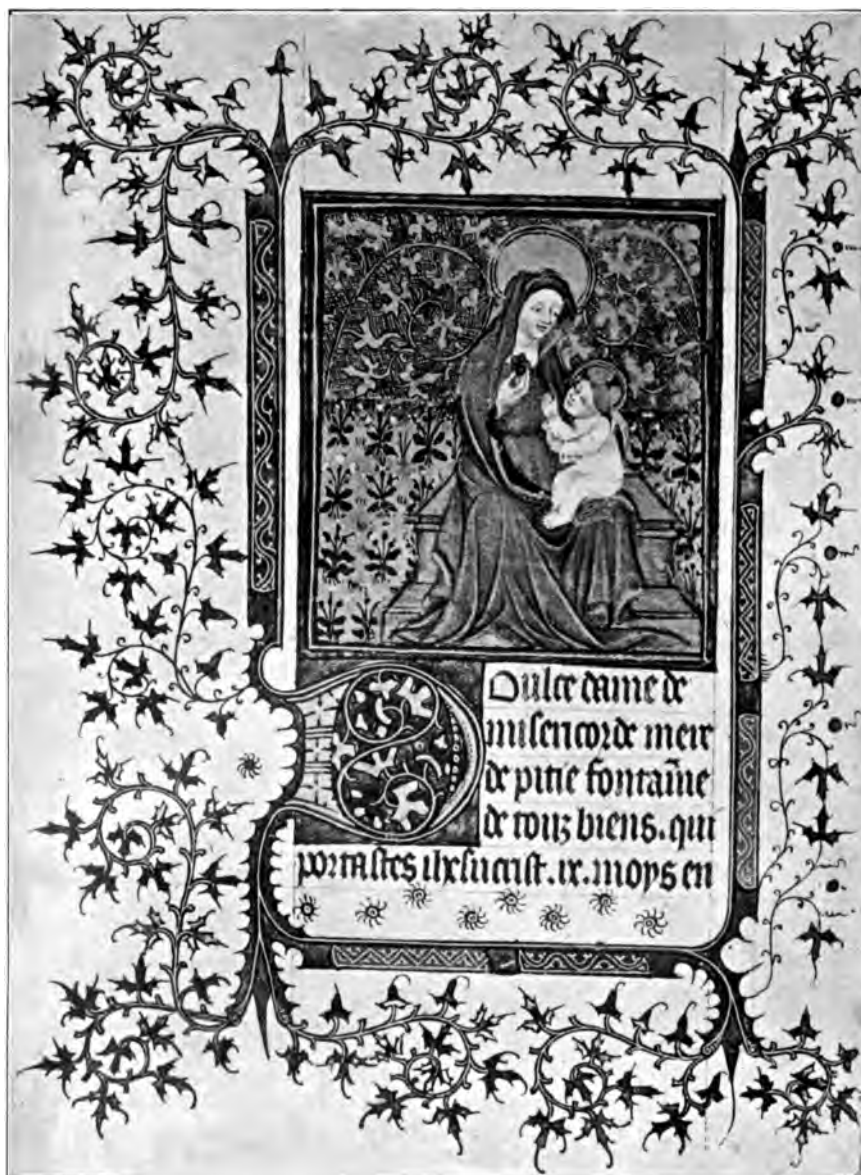 Dulce dame de
misericorde mere
de pitie fontaīne
de touz biens. qui
portastes ihxsucrist. ix. moys en